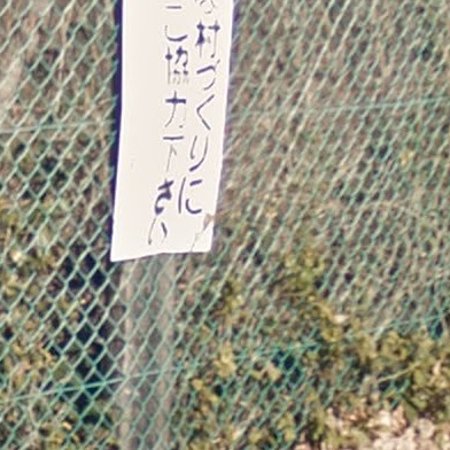 な村づくりに
ご協力下さい